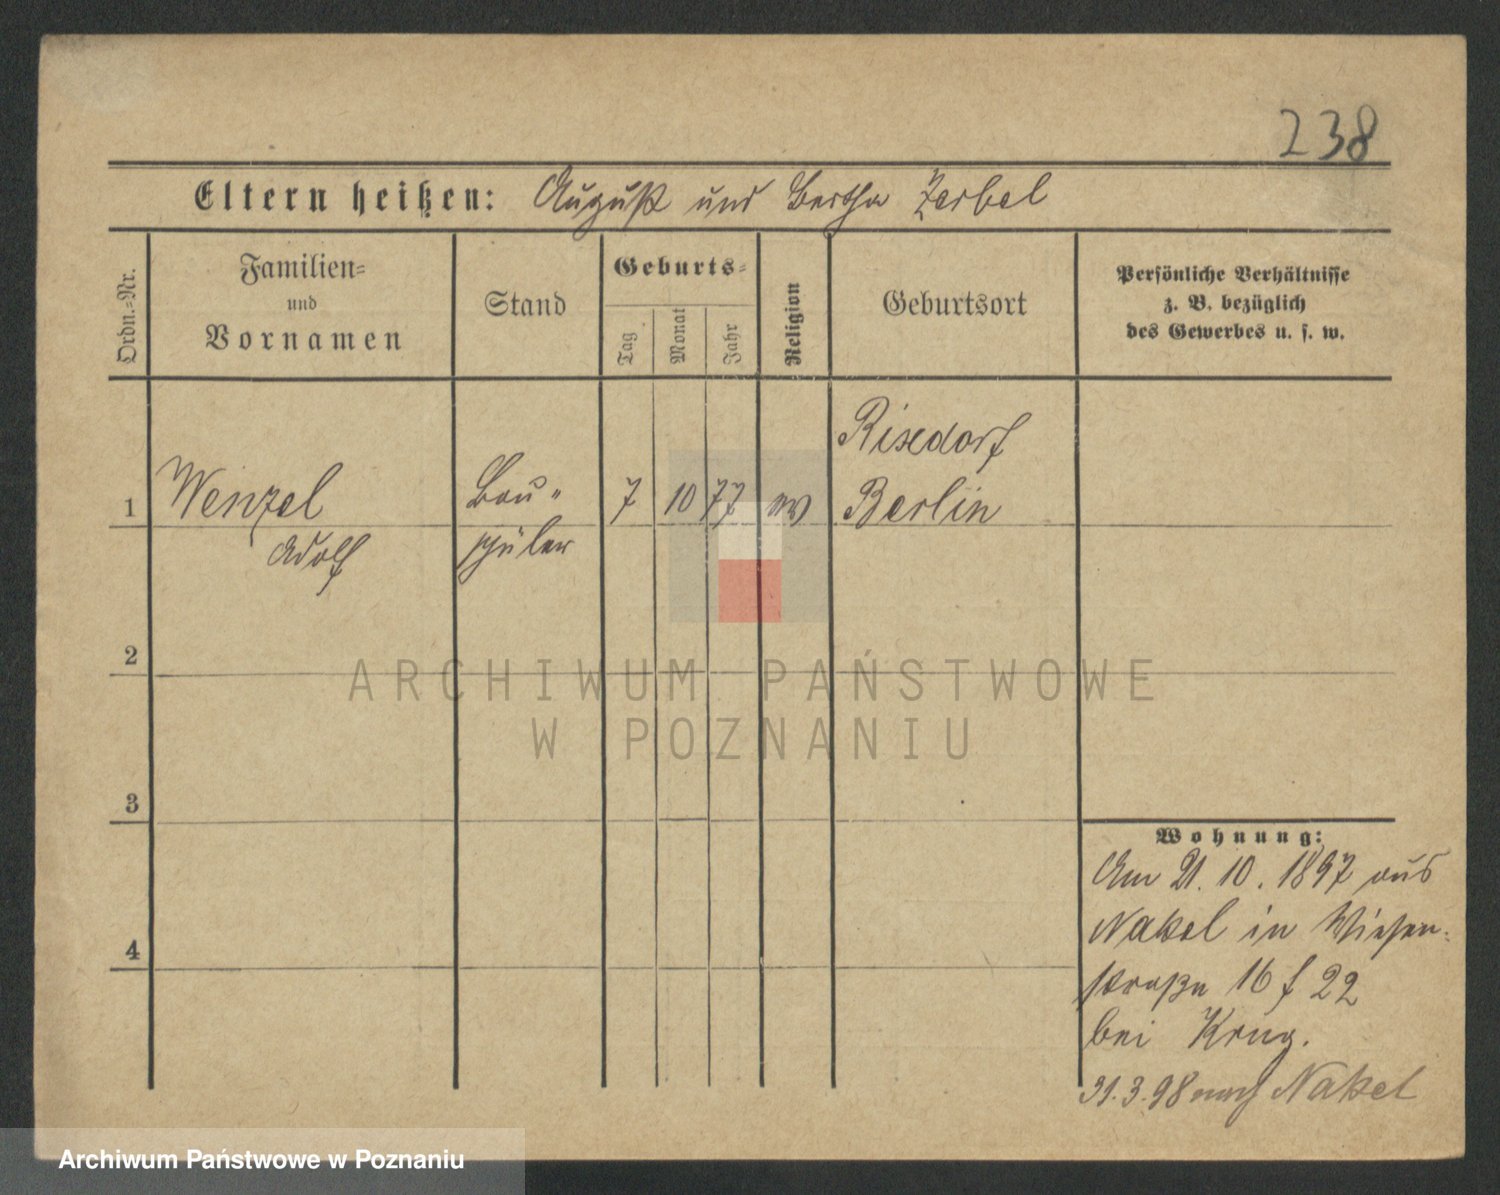 238
Eltern heißen: August und Bertha Zerbel
Ordn.-Nr.
Familien-
und
Vornamen
Stand
Geburts-
Tag
Monat
Jahr
Religion
Geburtsort
Persönliche Verhältnisse
z. B. bezüglich
des Gewerbes u. s. w.
1
Wenzel
Adolf
Bau-
schüler
7
10
77
ev
Rixdorf
Berlin
2
3
4
Wohnung:
Am 21. 10. 1897 aus
Nakel in Wiesen-
straße 16 f 22
bei Krug.
31.3.98 nach Nakel
ARCHIWUM PAŃSTWOWE
W POZNANIU
Archiwum Państwowe w Poznaniu